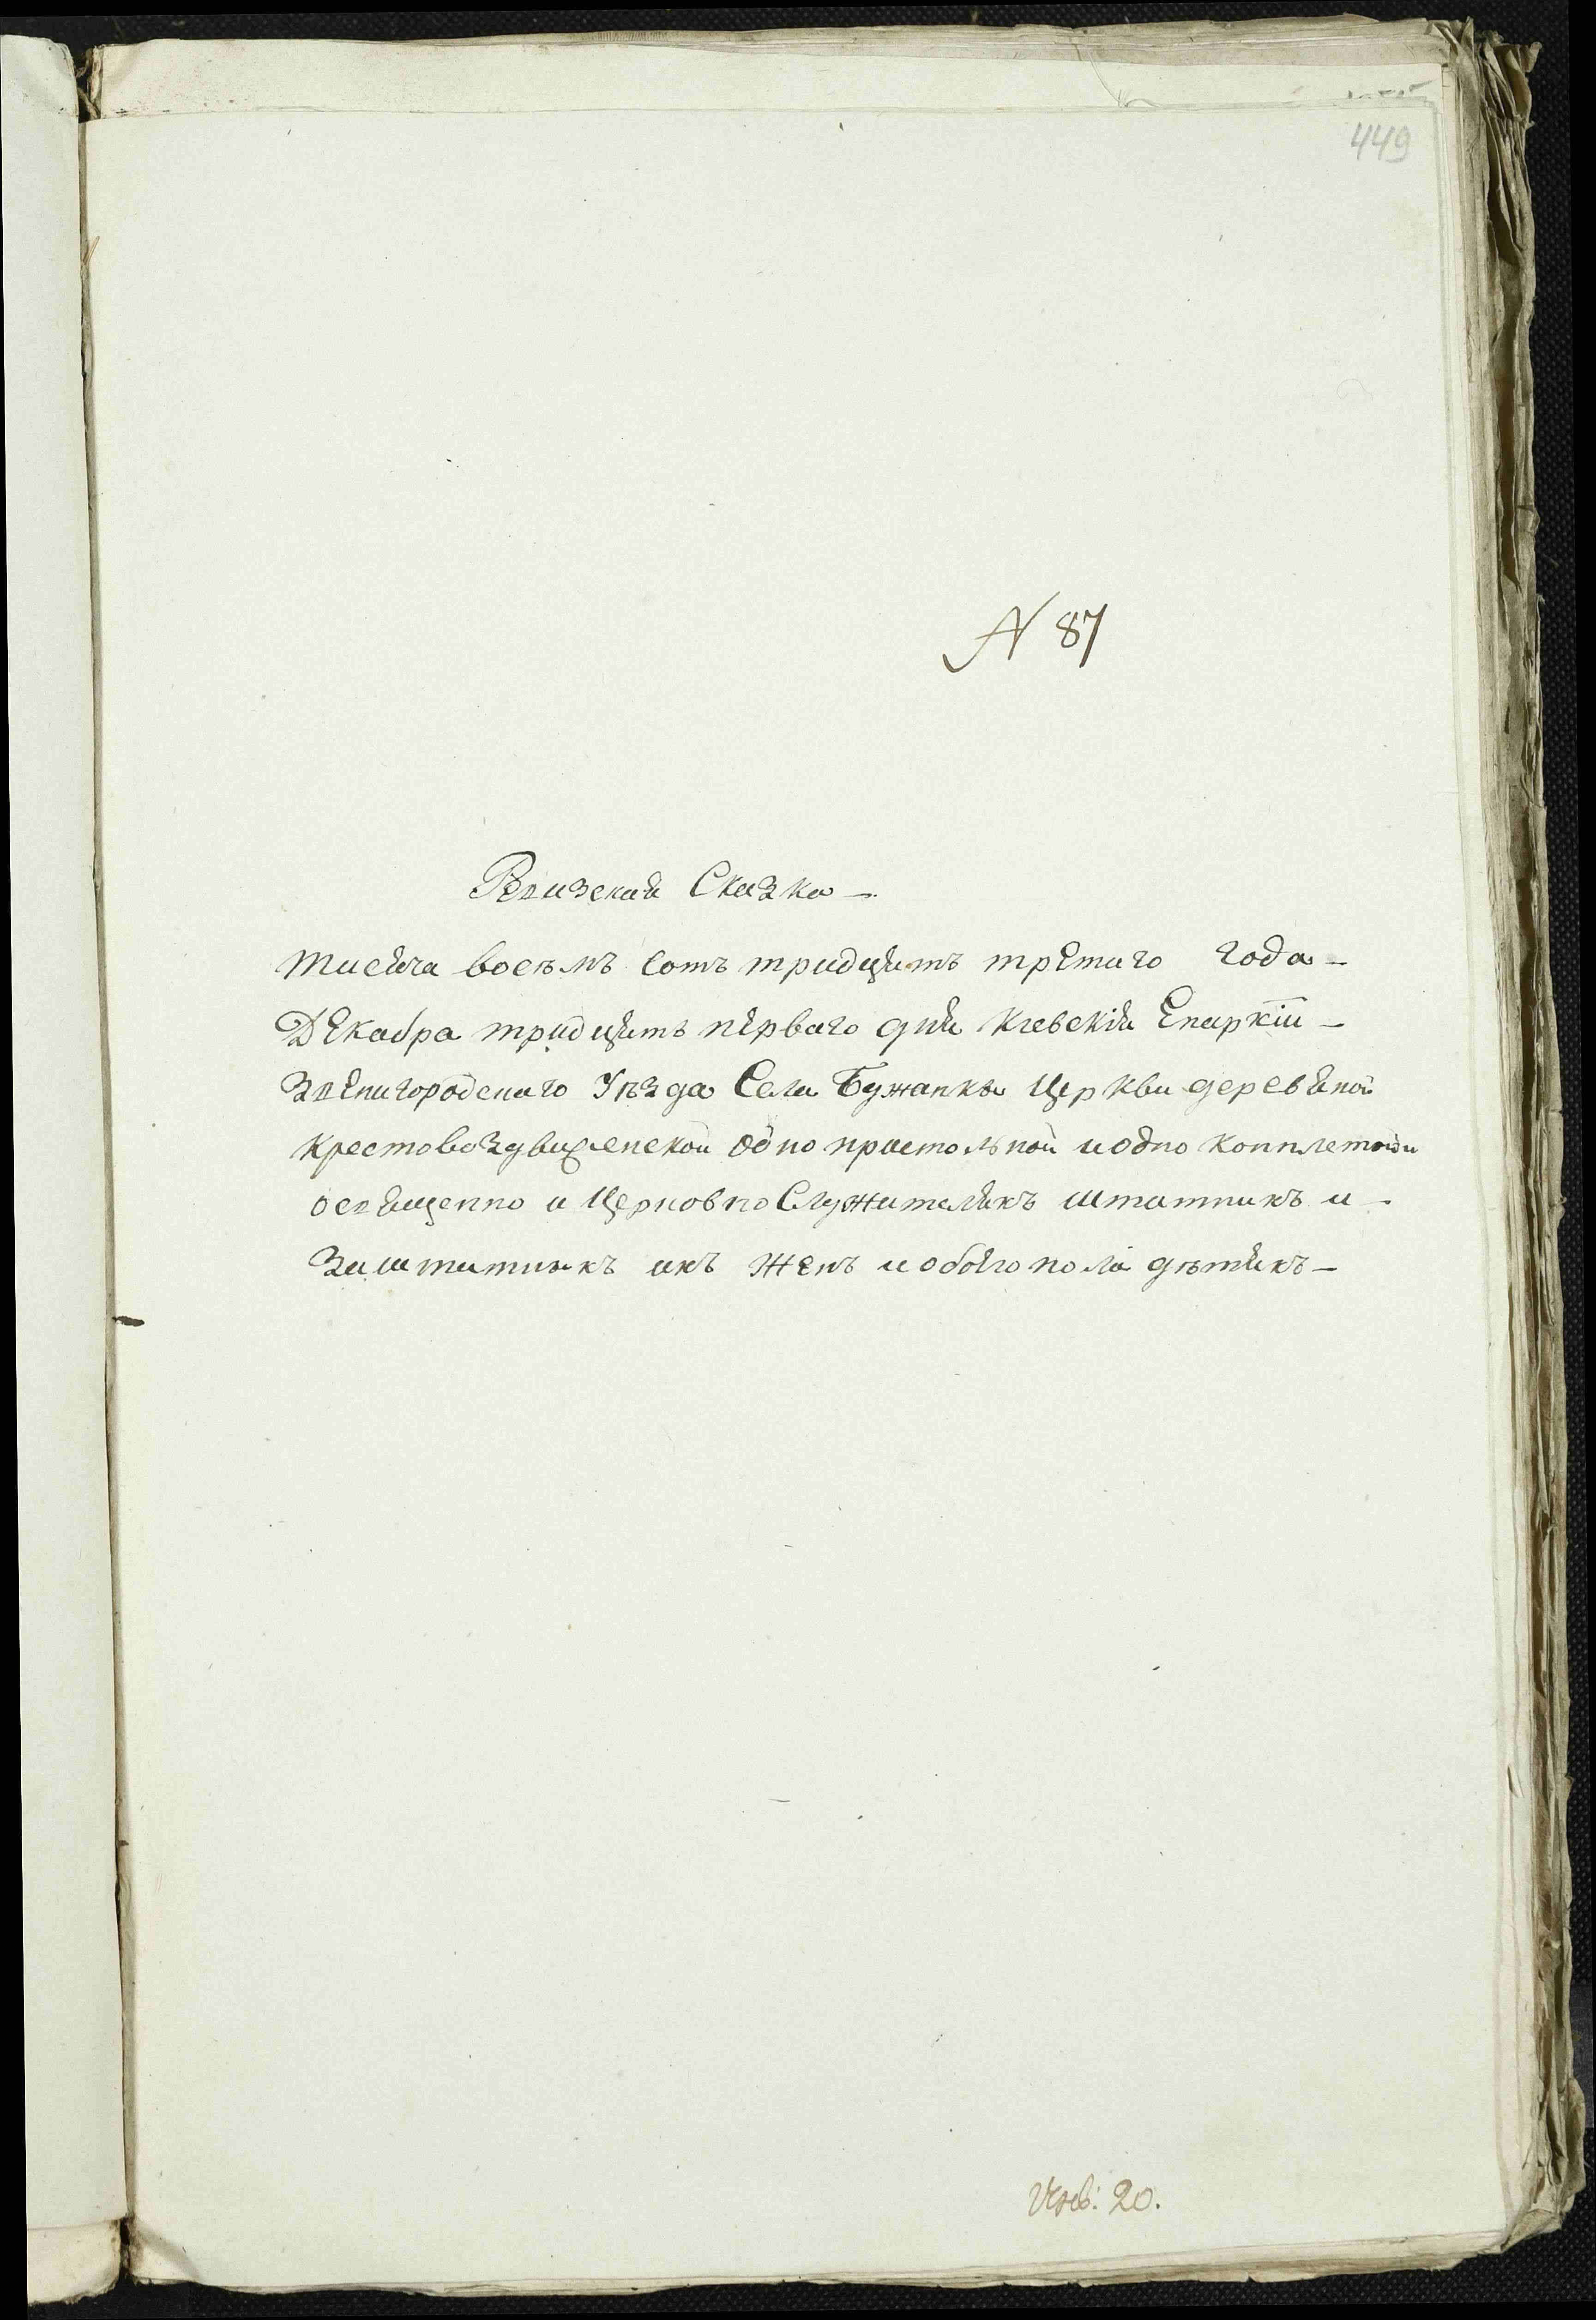 449
N 87
Ревизская Сказка —
тисяча восемъ сотъ тридцять третиго года —
Декабра тридцять перваго дня Кіевскія Епархіи —
Звенигородскаго Уѣзда Села Бужанки Церкви деревяной
крестовоздвиженской одно простольной и одно комплетной
освященно и Церковно Служителяхъ штатныхъ и —
Заштатныхъ ихъ женъ и обоего пола дѣтяхъ —
20.